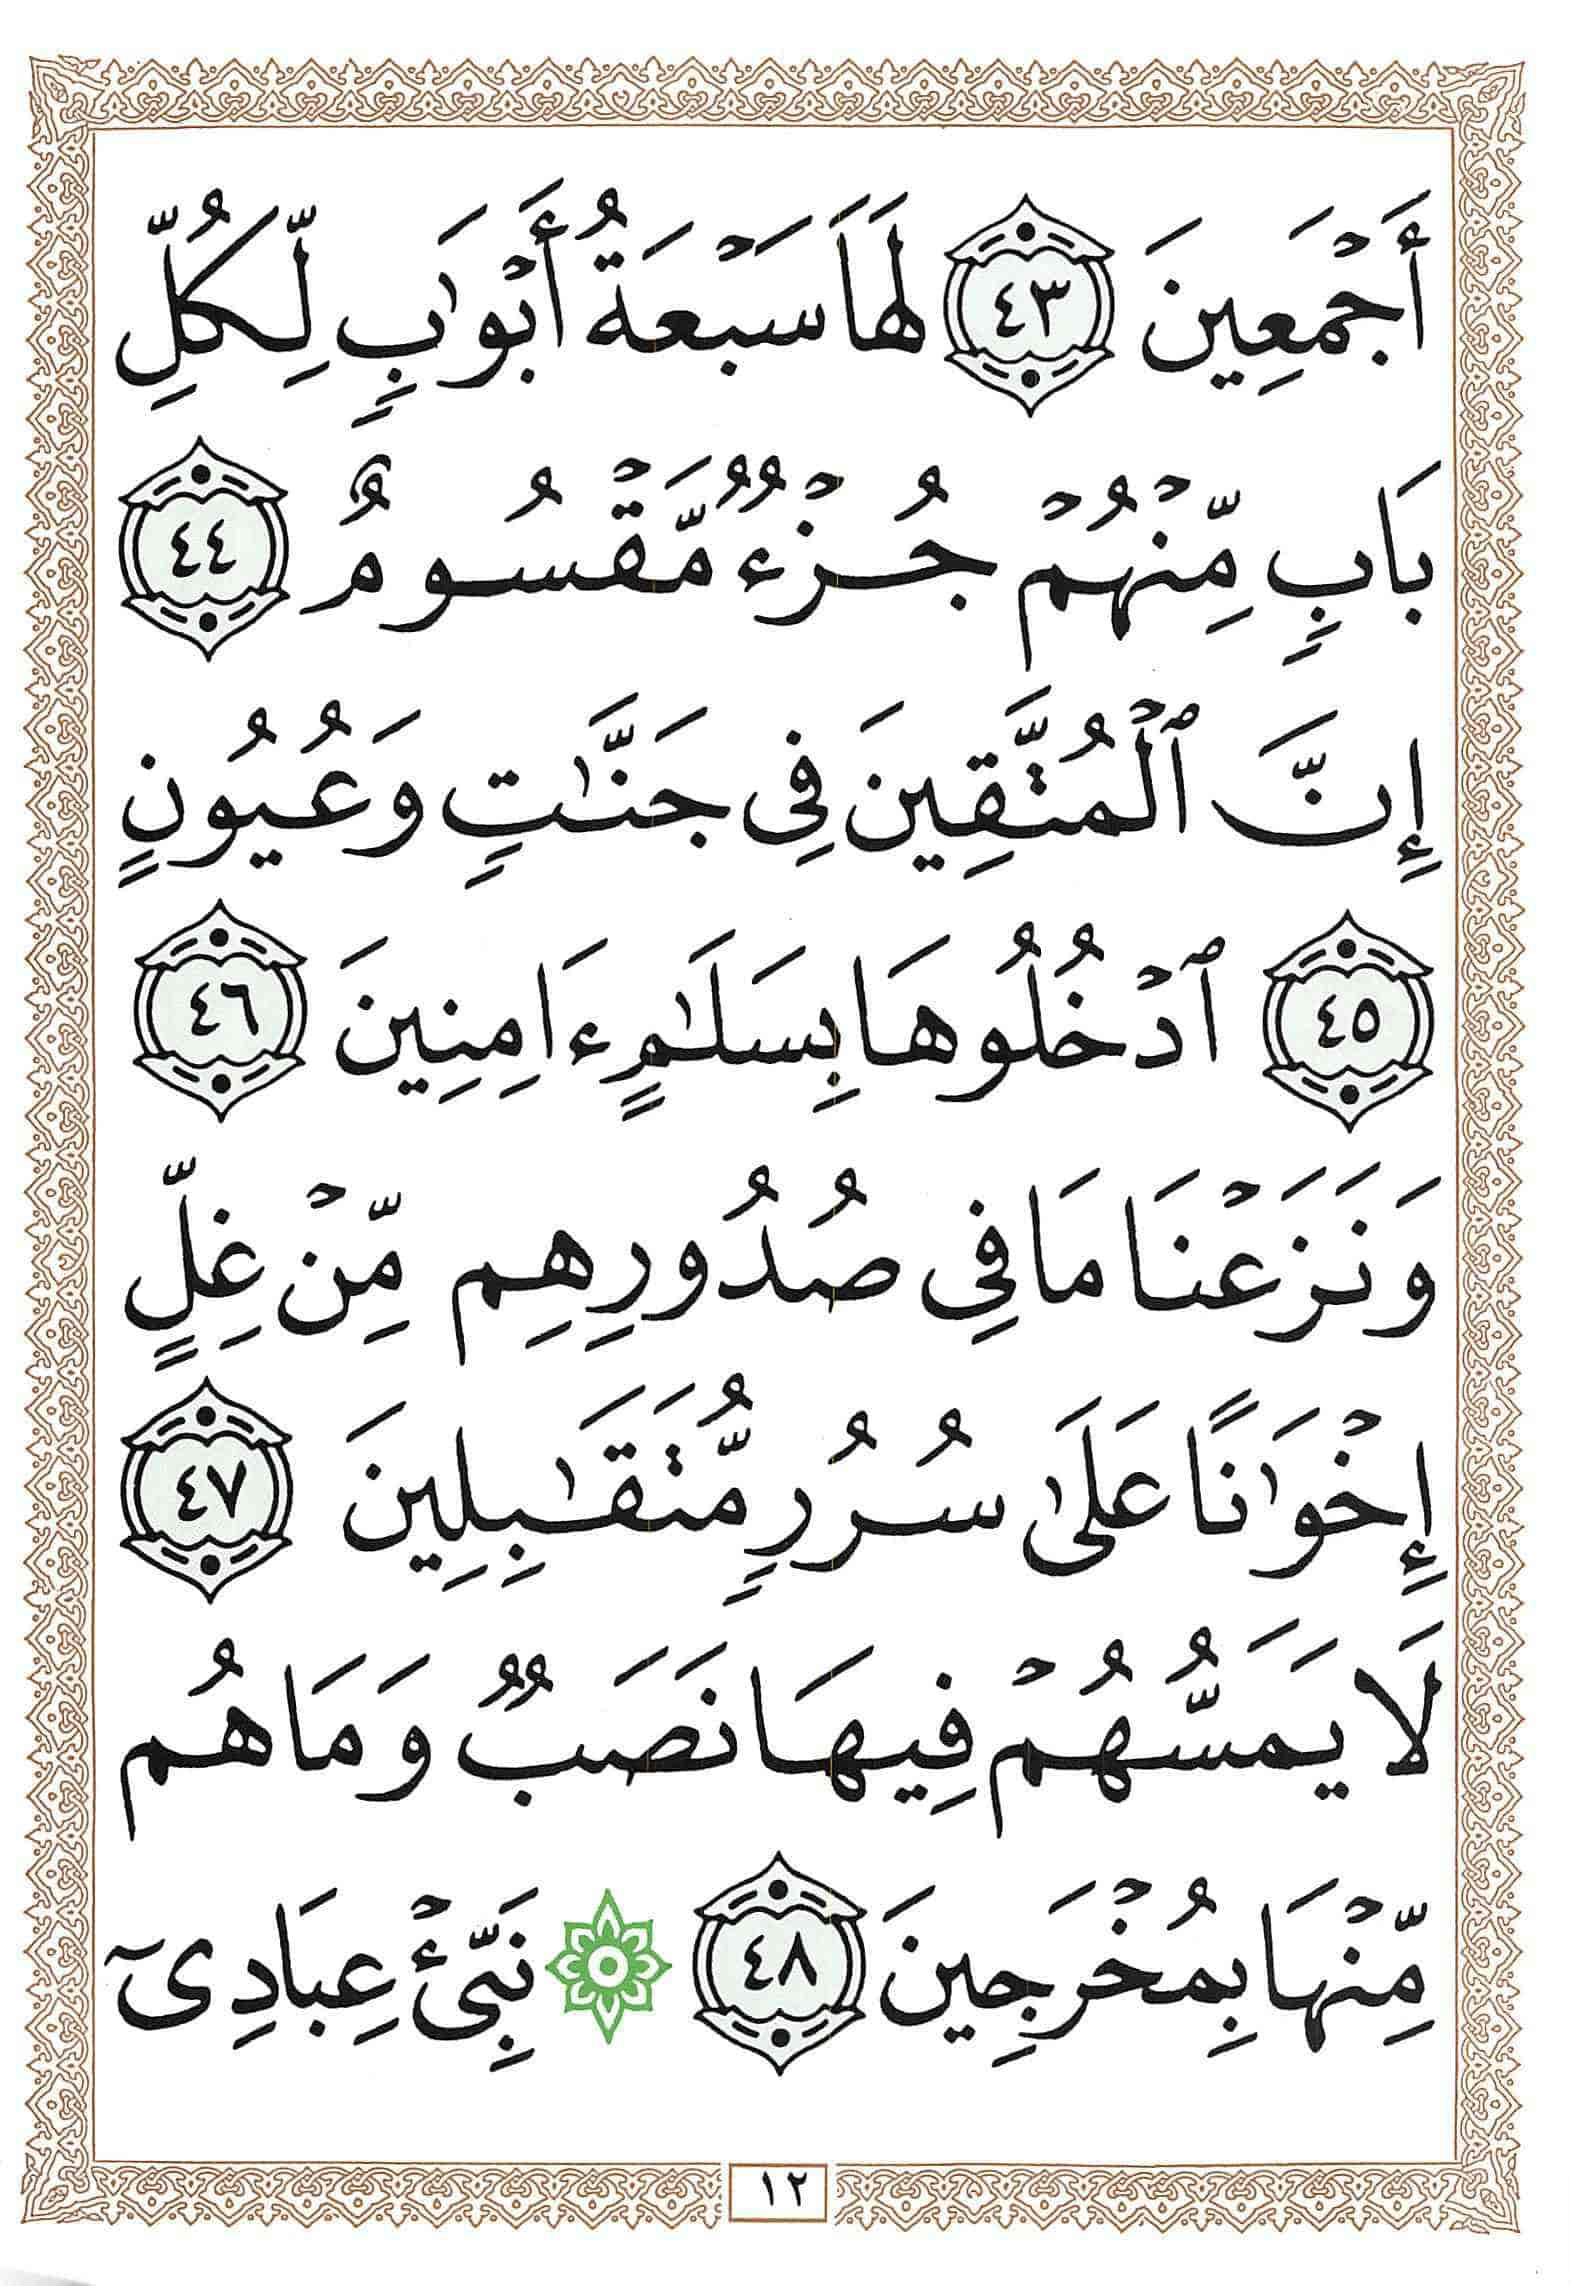 أَجْمَعِينَ ٤٣ لَهَا سَبْعَةُ أَبْوَٰبٍ لِّكُلِّ
بَابٍ مِّنْهُمْ جُزْءٌ مَّقْسُومٌ ٤٤
إِنَّ ٱلْمُتَّقِينَ فِى جَنَّٰتٍ وَعُيُونٍ
٤٥ ٱدْخُلُوهَا بِسَلَٰمٍ ءَامِنِينَ ٤٦
وَنَزَعْنَا مَا فِى صُدُورِهِم مِّنْ غِلٍّ
إِخْوَٰنًا عَلَىٰ سُرُرٍ مُّتَقَٰبِلِينَ ٤٧
لَا يَمَسُّهُمْ فِيهَا نَصَبٌ وَمَا هُم
مِّنْهَا بِمُخْرَجِينَ ٤٨ ۞ نَبِّئْ عِبَادِىٓ
١٢